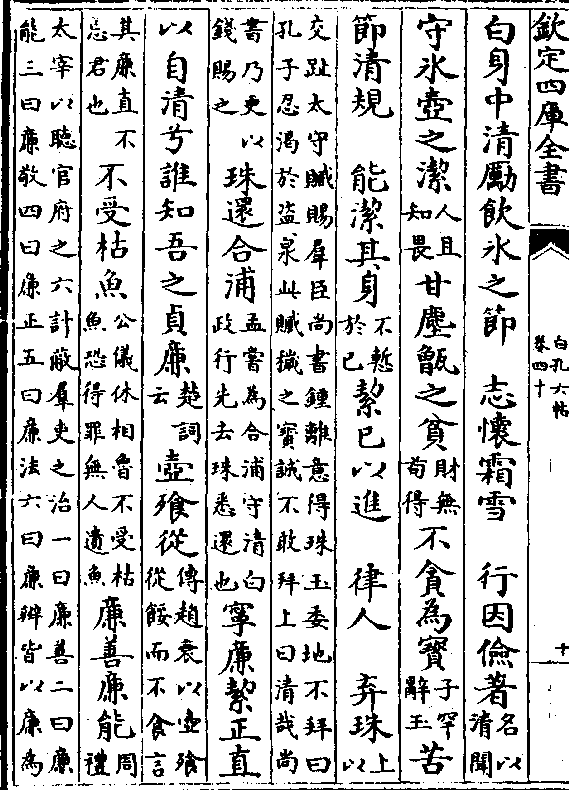 欽定四庫全書
白孔六帖
卷四十
十
白身中清勵飲氷之節　志懷霜雪　行因儉著名以清聞
守氷壺之潔人且知畏甘塵甑之貧財無苟得不貪為寳子罕辭玉苦
節清規　能潔其身不慙於已絜已以進　律人　弃珠上以
交趾太守贓賜羣臣尚書鍾離意得珠玉委地不拜曰
孔子忍渴於盜泉此贓穢之寳誠不敢拜上曰清哉尚
書乃更以錢賜之珠還合浦孟嘗為合浦守清白政行先去珠悉還也寧廉絜正直
以自清兮誰知吾之貞廉楚詞云壺飱從傳趙衰以壺飱從餒而不食言
其廉直不忘君也不受枯魚公儀休相魯不受枯魚恐得罪無人遺魚廉善廉能周禮
太宰以聽官府之六計蔽羣吏之治一曰廉善二曰廉
能三曰廉敬四曰廉正五曰廉法六曰廉辨皆以廉為